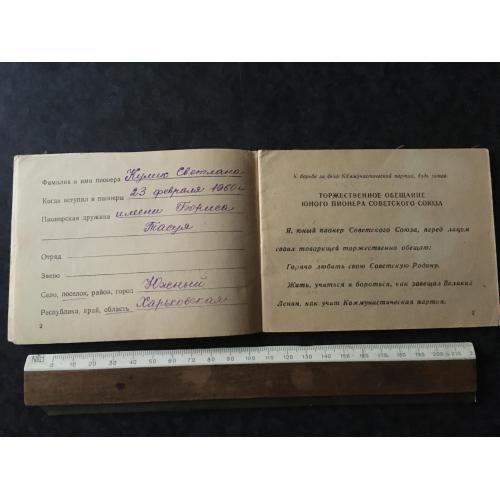 Фамилия и имя пионера Кулик Светлана
Когда вступил в пионеры 23 февраля 1960 г
Пионерская дружина имени Бориса
Тасуя
Отряд
Звено
Село, поселок, район, город Южный
Республика, край, область Харьковская
2
К борьбе за дело Коммунистической партии, будь готов!
ТОРЖЕСТВЕННОЕ ОБЕЩАНИЕ
ЮНОГО ПИОНЕРА СОВЕТСКОГО СОЮЗА
Я, юный пионер Советского Союза, перед лицом
своих товарищей торжественно обещаю:
Горячо любить свою Советскую Родину.
Жить, учиться и бороться, как завещал Великий
Ленин, как учит Коммунистическая партия.
0 10 20 30 40 50 60 70 80 90 100 110 120 130 140 150 160 170 180 190 200 210